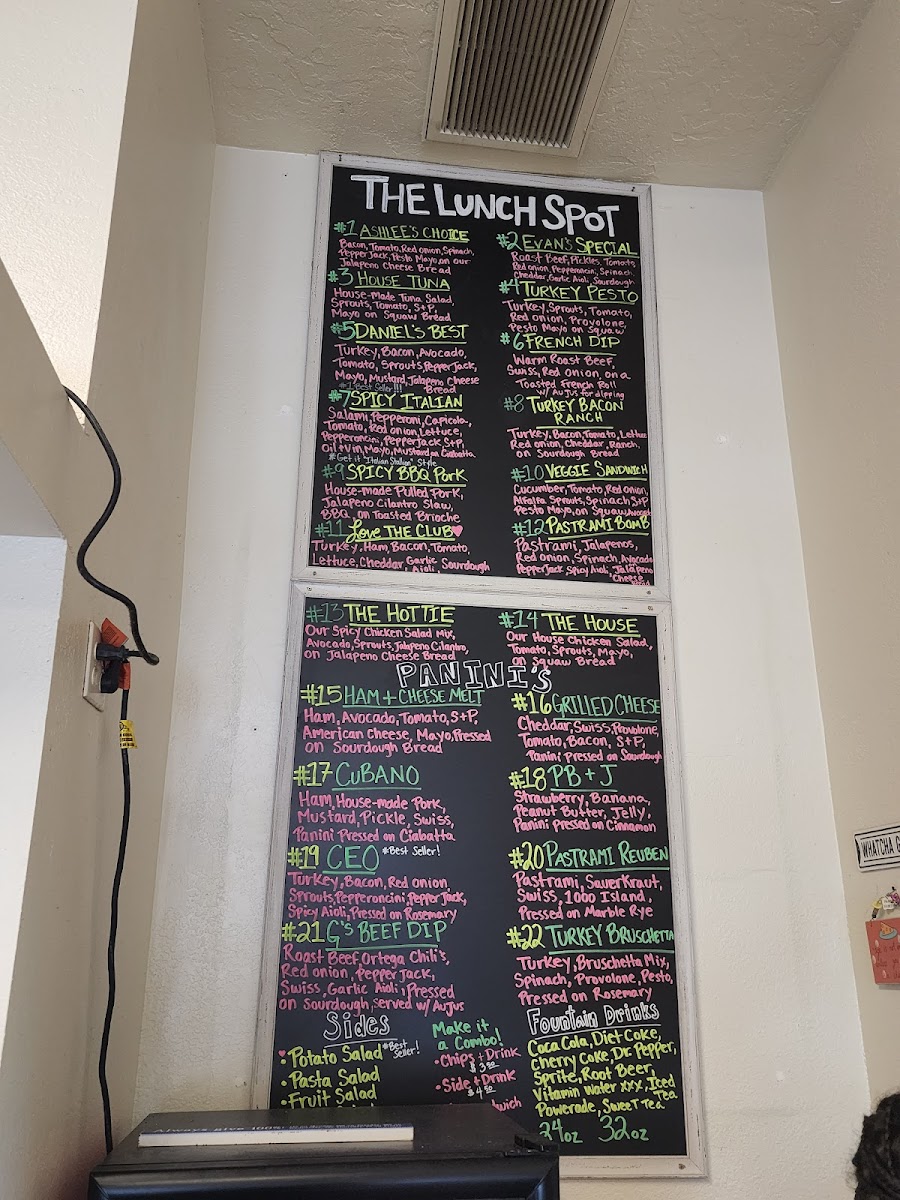 THE LUNCH SPOT
#1 ASHLEE'S CHOICE
Bacon, Tomato, Red onion, Spinach,
Pepper Jack, Pesto Mayo, on our
Jalapeno Cheese Bread
#2 EVAN'S SPECIAL
Roast Beef, Pickles, Tomato
Red onion, Pepperoncini, Spinach
Cheddar, Garlic Aioli, Sourdough
#3 HOUSE TUNA
House-made Tuna Salad
Sprouts, Tomato, S+P,
Mayo on Squaw Bread
#4 TURKEY PESTO
Turkey, Sprouts, Tomato,
Red onion, Provolone,
Pesto Mayo on Squaw
#5 DANIEL'S BEST
Turkey, Bacon, Avocado,
Tomato, Sprouts, Pepper Jack,
Mayo, Mustard, Jalapeno Cheese
#1 Best Seller!!! Bread
#6 FRENCH DIP
Warm Roast Beef,
Swiss, Red onion, on a
Toasted French Roll
w/ Au Jus for dipping
#7 SPICY ITALIAN
Salami, Pepperoni, Capicola,
Tomato, Red onion, Lettuce,
Pepperoncini, Pepper Jack, S+P,
Oil+Vin, Mayo, Mustard on Ciabatta
*Get it "Italian Stallion" Style
#8 TURKEY BACON
RANCH
Turkey, Bacon, Tomato, Lettuce
Red onion, Cheddar, Ranch,
on Sourdough Bread
#9 SPICY BBQ Pork
House-made Pulled Pork,
Jalapeno Cilantro Slaw,
BBQ, on Toasted Brioche
#10 VEGGIE SANDWICH
Cucumber, Tomato, Red onion,
Alfalfa Sprouts, Spinach, S+P
Pesto Mayo, on Squaw
#11 Love THE CLUB
Turkey, Ham, Bacon, Tomato,
Lettuce, Cheddar, Garlic Sourdough
Aioli,
#12 PASTRAMI BOMB
Pastrami, Jalapenos,
Red onion, Spinach, Avocado
Pepper Jack, Spicy Aioli, Jalapeno
Cheese
Bread
#13 THE HOTTIE
Our Spicy Chicken Salad Mix,
Avocado, Sprouts, Jalapeno Cilantro,
on Jalapeno Cheese Bread
#14 THE HOUSE
Our House Chicken Salad,
Tomato, Sprouts, Mayo,
on Squaw Bread
PANINI'S
#15 HAM + CHEESE MELT
Ham, Avocado, Tomato, S+P,
American Cheese, Mayo, Pressed
on Sourdough Bread
#16 GRILLED CHEESE
Cheddar, Swiss, Provolone,
Tomato, Bacon, S+P,
Panini Pressed on Sourdough
#17 CUBANO
Ham, House-made Pork,
Mustard, Pickle, Swiss,
Panini Pressed on Ciabatta
#18 PB + J
Strawberry, Banana,
Peanut Butter, Jelly,
Panini Pressed on Cinnamon
#19 CEO *Best Seller!
Turkey, Bacon, Red onion
Sprouts, Pepperoncini, Pepper Jack,
Spicy Aioli, Pressed on Rosemary
#20 PASTRAMI REUBEN
Pastrami, Sauerkraut,
Swiss, 1000 Island,
Pressed on Marble Rye
#21 G'S BEEF DIP
Roast Beef, Ortega Chili's,
Red onion, Pepper Jack,
Swiss, Garlic Aioli, Pressed
on Sourdough, served w/ AuJus
#22 TURKEY BRUSCHETTA
Turkey, Bruschetta Mix,
Spinach, Provolone, Pesto,
Pressed on Rosemary
Sides
• Potato Salad *Best Seller!
• Pasta Salad
• Fruit Salad
Make it
a Combo!
• Chips + Drink
$3.50
• Side + Drink
$4.50
Fountain Drinks
Coca Cola, Diet Coke,
Cherry Coke, Dr. Pepper,
Sprite, Root Beer,
Vitamin water xxx, Iced Tea
Powerade, Sweet Tea
24oz 32oz
WHATCHA G